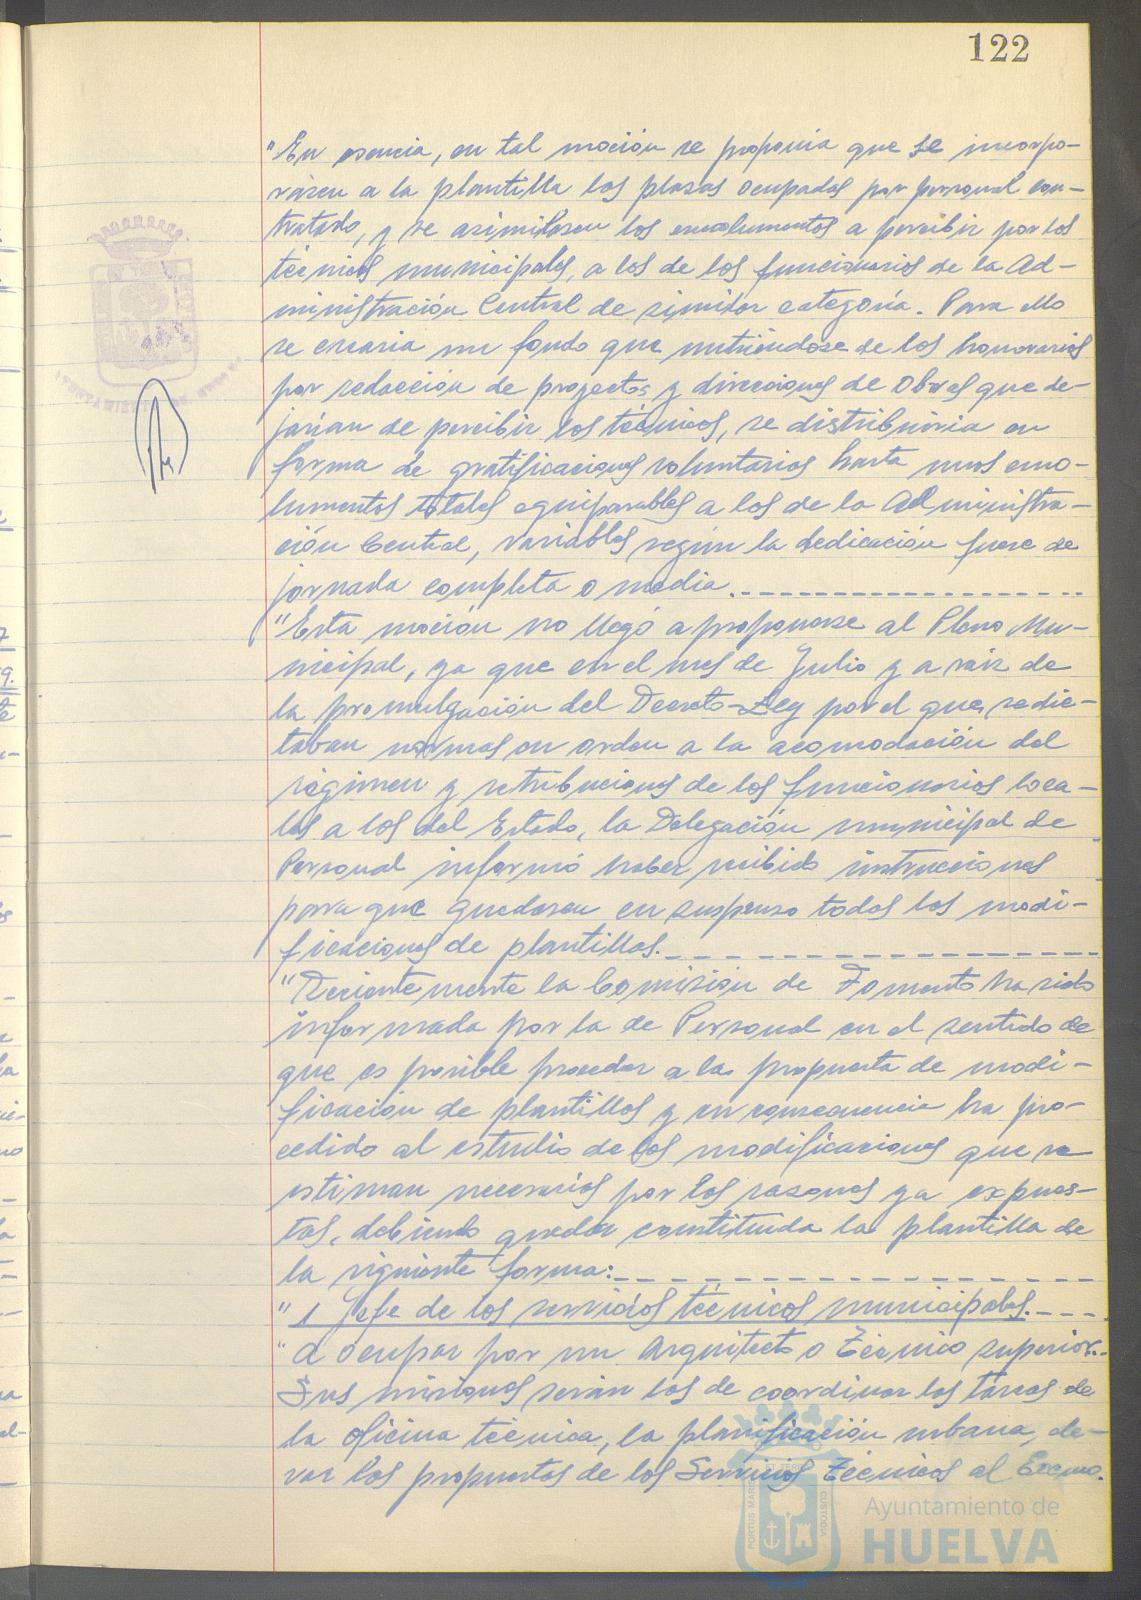 122
"En esencia, en tal moción se proponía que se incorpo-
rasen a la plantilla las plazas ocupadas por personal con-
tratado, y se asimilasen los emolumentos a percibir por los
técnicos municipales, a los de los funcionarios de la Ad-
ministración Central de similar categoría. Para ello
se crearia un fondo que nutriéndose de los honorarios
por redacción de proyectos y direcciones de obras que de-
jarían de percibir los técnicos, se distribuiria en
forma de gratificaciones voluntarias hasta unos emo-
lumentos totales equiparables a los de la Administra-
ción Central, variables según la dedicación fuese de
jornada completa o media.
"Esta moción no llegó a proponerse al Pleno Mu-
nicipal, ya que en el mes de Julio y a raiz de
la promulgación del Decreto-Ley por el que se dic-
taban normas en orden a la acomodación del
régimen y retribuciones de los funcionarios loca-
les a los del Estado, la Delegación municipal de
Personal informó haber recibido instrucciones
para que quedasen en suspenso todas las modi-
ficaciones de plantillas.
"Recientemente la Comisión de Fomento ha sido
informada por la de Personal en el sentido de
que es posible proceder a la propuesta de modi-
ficación de plantillas y en consecuencia ha pro-
cedido al estudio de las modificaciones que se
estiman necesarias por las razones ya expues-
tas, debiendo quedar constituida la plantilla de
la siguiente forma:
"1 Jefe de los servicios técnicos municipales.
"A ocupar por un Arquitecto o Técnico superior.
Sus misiones serán las de coordinar las tareas de
la oficina técnica, la planificación urbana, ele-
var las propuestas de los Servicios Técnicos al Excmo.
PORTUS MARIS ET TERRAE CUSTODIA
Ayuntamiento de
HUELVA